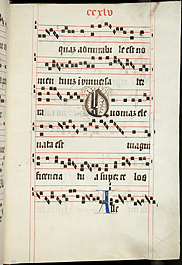 ccxlv
quam admirabi le est no
men tuum in vniuersa ter
ra Quoniam ele
uata est magni
ficencia tu a super ce los
A ue